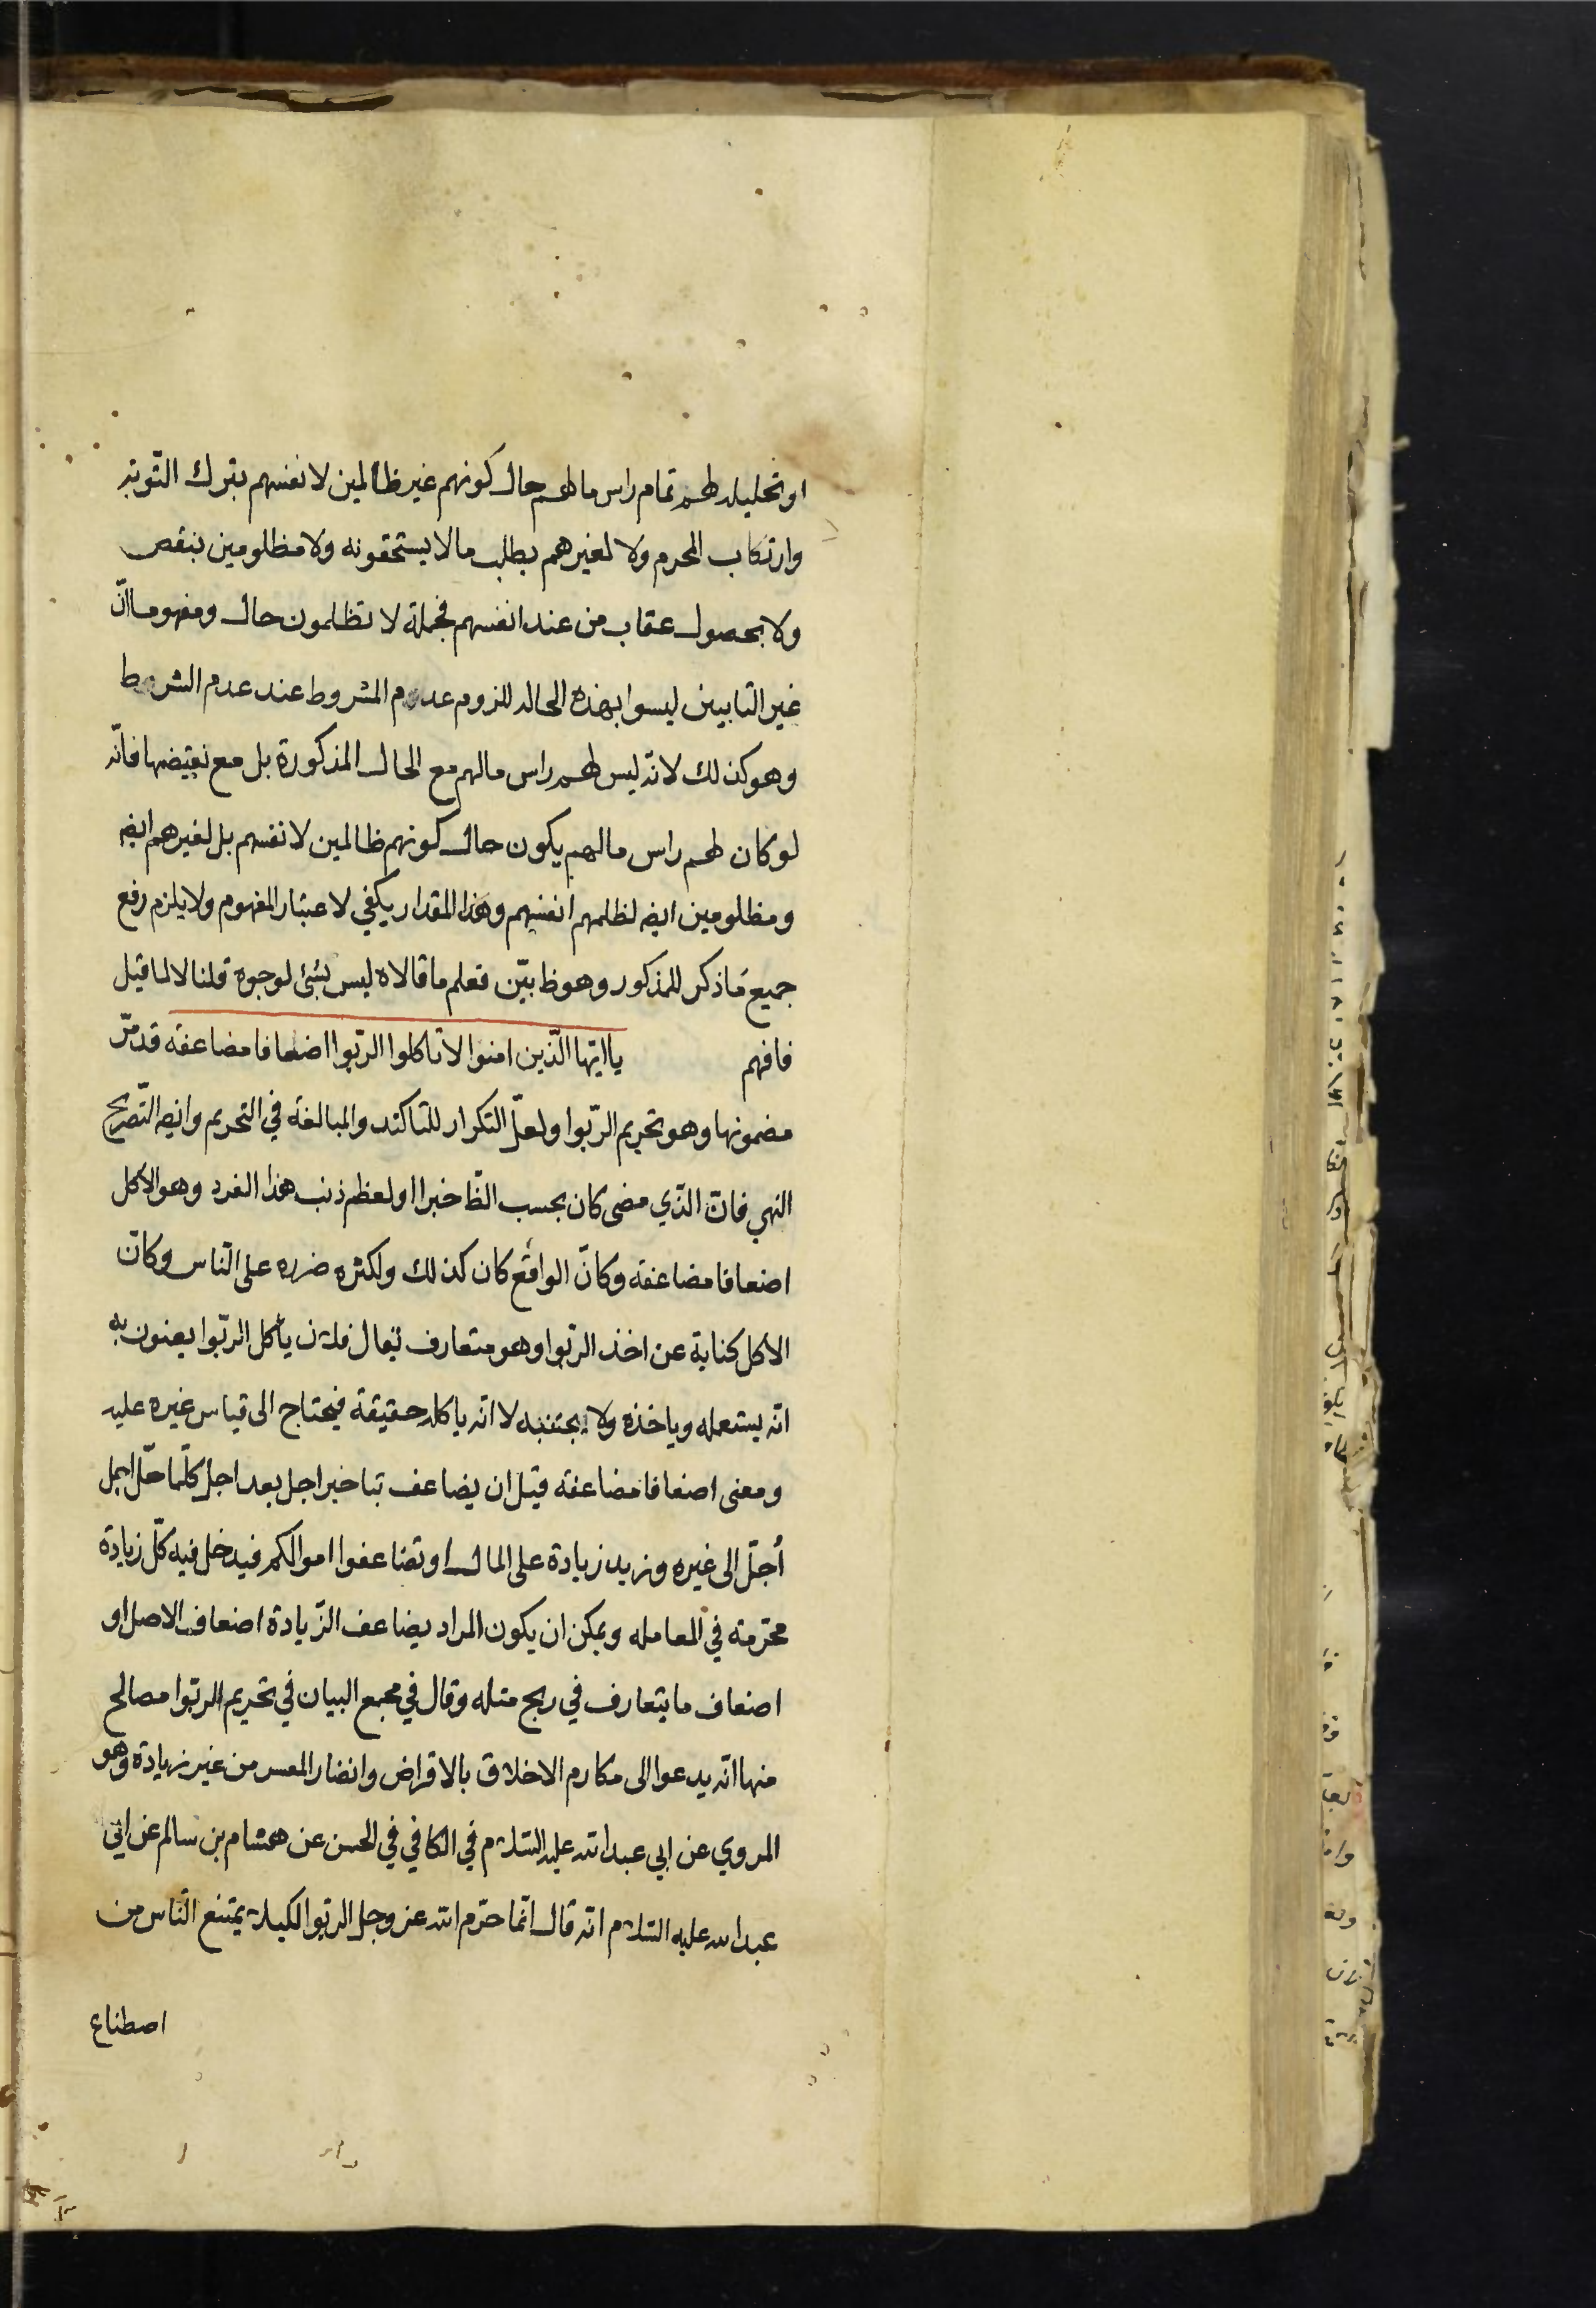 او تحليله لهم تمام راس مالهم حال كونهم غير ظالمين لانفسهم بترك التّوبة
وارتكاب المحرم ولا لغيرهم بطلب ما لا يستحقونه ولا مظلومين بنقص
ولا بحصول عقاب من عند انفسهم فجملة لا تظلمون حال ومفهومها انّ
غير التايبين ليسوا بهذه الحاله للزوم عدم المشروط عند عدم الشرط
وهو كذلك لانّه ليس لهم راس مالهم مع الحال المذكورة بل مع نقيضها فانّه
لو كان لهم راس مالهم يكون حال كونهم ظالمين لانفسهم بل لغيرهم ايضه
ومظلومين ايضه لظلمهم انفسهم وهذا المقدار يكفي لاعتبار المفهوم ولا يلزم رفع
جميع ما ذكر للمذكور وهو ظ بيّن فعلم ما قالاه ليس بشئ لوجوه قلنا لا لما قيل
فافهم يا ايّها الّذين امنوا لا تاكلوا الرّبوا اضعافا مضاعفة قد مرّ
مضمونها وهو تحريم الرّبوا ولعلّ التكرار للتاكيد والمبالغة في التحريم وايضه التّصريح
النهي فانّ الذّي مضى كان بحسب الظّ خبرا او لعظم ذنب هذا الفرد وهو الاكل
اضعافا مضاعفه وكانّ الواقع كان كذلك ولكثره ضرره على النّاس وكانّ
الاكل كناية عن اخذ الرّبوا وهو متعارف يقال فلان ياكل الرّبوا يعنون به
انّه يستعمله وياخذه ولا يجتنبه لا انّه ياكله حقيقة فيحتاج الى قياس غيره عليه
ومعنى اضعافا مضاعفه قيل ان يضاعف بتاخير اجل بعد اجل كلّما حلّ اجل
أجّل الى غيره وزيد زيادة على المال او تضاعفوا اموالكم فيدخل فيه كلّ زيادة
محرّمه في المعامله ويمكن ان يكون المراد يضاعف الزّيادة اضعاف الاصل او
اضعاف ما يتعارف في ربح مثله وقال في مجمع البيان في تحريم الربوا مصالح
منها انّه يدعوا الى مكارم الاخلاق بالاقراض وانضار المعسر من غير زيادة وهو
المروي عن ابي عبد الله عليه السّلام في الكافي في الحسن عن هشام بن سالم عن ابي
عبد الله عليه السّلام انّه قال انّما حرّم الله عز وجل الربوا لكيلا يمتنع النّاس من
اصطناع